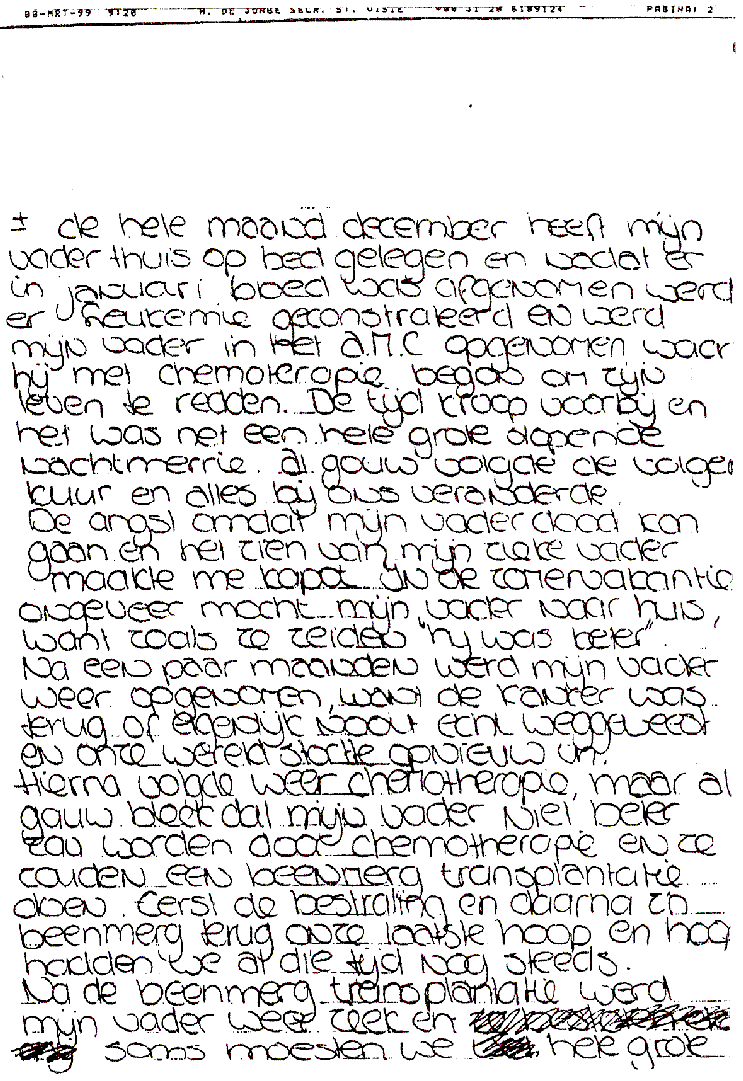 08-MRT-99 9:20 M. DE JONGE SECR. ST. VISIE 31 20 6189124 PAGINA: 2
± de hele maand december heeft mijn
vader thuis op bed gelegen en nadat er
in januari bloed was afgenomen werd
er leukemie geconstrateerd en werd
mijn vader in het A.M.C opgenomen waar
hij met chemoterapie begon om zijn
leven te redden. De tijd kroop voorbij en
het was net een hele grote slopende
nachtmerrie. Al gauw volgde de volgen
kuur en alles bij ons veranderde.
De angst omdat mijn vader dood kon
gaan en het zien van mijn zieke vader
maakte me kapot. In de zomervakantie
ongeveer mocht mijn vader naar huis,
want zoals ze zeiden "hij was beter".
Na een paar maanden werd mijn vader
weer opgenomen, want de kanker was
terug of eigenlijk nooit echt weggeweest
en onze wereld stortte opnieuw in.
Hierna volgde weer chemotherapie, maar al
gauw bleek dat mijn vader niet beter
zou worden door chemotherapie en ze
zouden een beenmerg transplantatie
doen. Eerst de bestraling en daarna zn
beenmerg terug onze laatste hoop en hoop
hadden we al die tijd nog steeds.
Na de beenmerg transplantatie werd
mijn vader weer ziek en
soms moesten we hele grote